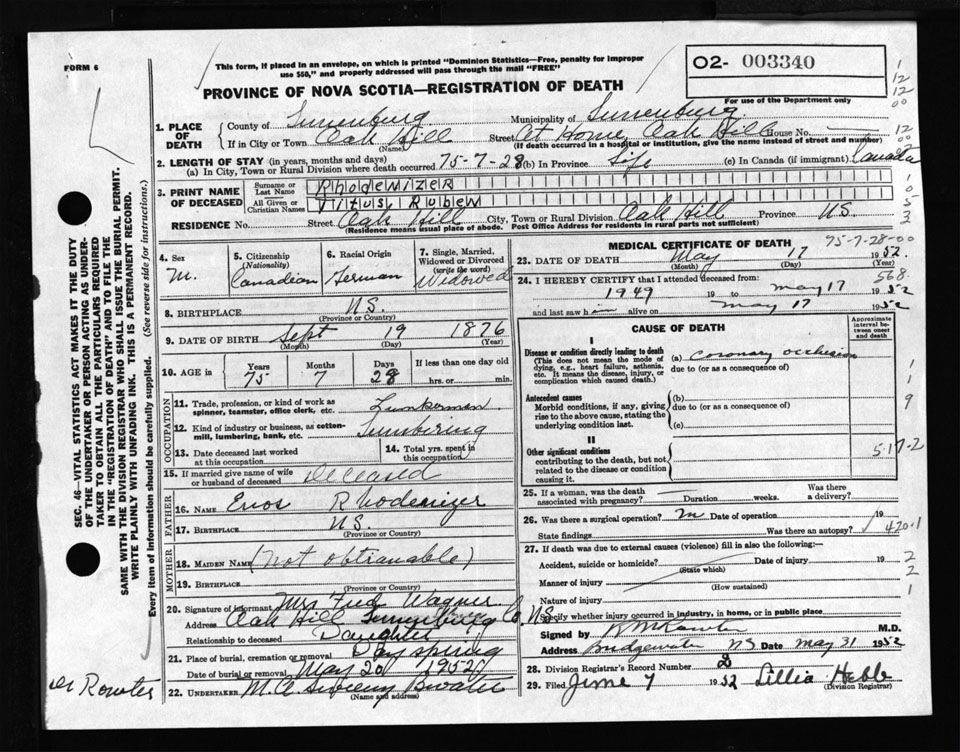 FORM 6
This form, if placed in an envelope, on which is printed "Dominion Statistics—Free, penalty for improper
use $50," and properly addressed will pass through the mail "FREE"
O2- 003340
For use of the Department only
PROVINCE OF NOVA SCOTIA—REGISTRATION OF DEATH
1. PLACE OF DEATH
County of Lunenburg Municipality of Lunenburg
If in City or Town Oak Hill Street At Home, Oak Hill House No.
(Name) (If death occurred in a hospital or institution, give name instead of street and number)
2. LENGTH OF STAY (in years, months and days)
(a) In City, Town or Rural Division where death occurred 75-7-28 (b) In Province Life (c) In Canada (if immigrant) Canada
3. PRINT NAME OF DECEASED
Surname or Last Name Rhodenizer
All Given or Christian Names Titus Ruben
RESIDENCE No. Street Oak Hill City, Town or Rural Division Oak Hill Province NS.
(Residence means usual place of abode. Post Office Address for residents in rural parts not sufficient)
4. Sex M.
5. Citizenship (Nationality) Canadian
6. Racial Origin German
7. Single, Married, Widowed or Divorced (write the word) Widowed
8. BIRTHPLACE NS.
(Province or Country)
9. DATE OF BIRTH Sept 19 1876
(Month) (Day) (Year)
10. AGE in Years 75 Months 7 Days 28 If less than one day old hrs. or min.
OCCUPATION
11. Trade, profession, or kind of work as spinner, teamster, office clerk, etc. Lumberman
12. Kind of industry or business, as cotten-mill, lumbering, bank, etc. Lumbering
13. Date deceased last worked at this occupation
14. Total yrs. spent in this occupation
15. If married give name of wife or husband of deceased Deceased
FATHER
16. NAME Enos Rhodenizer
17. BIRTHPLACE NS.
(Province or Country)
MOTHER
18. MAIDEN NAME (not obtianable)
19. BIRTHPLACE
(Province or Country)
20. Signature of informant Mrs Fred Wagner
Address Oak Hill Lunenburg Co NS.
Relationship to deceased Daughter
21. Place of burial, cremation or removal Dayspring
Date of burial or removal May 20 1952
22. UNDERTAKER M. A. Sweeny Bwater
(Name and address)
MEDICAL CERTIFICATE OF DEATH 75-7-28-00
23. DATE OF DEATH May 17 1952
(Month) (Day) (Year)
568
24. I HEREBY CERTIFY that I attended deceased from:
1949 19 to May 17 1952
and last saw him alive on May 17 1952
CAUSE OF DEATH
Approximate interval between onset and death
I
Disease or condition directly leading to death (a) coronary occlusion
(This does not mean the mode of dying, e.g., heart failure, asthenia, etc. It means the disease, injury, or complication which caused death.)
due to (or as a consequence of)
Antecedent causes (b)
Morbid conditions, if any, giving rise to the above cause, stating the underlying condition last.
due to (or as a consequence of)
(c)
II
Other significant conditions
contributing to the death, but not related to the disease or condition causing it.
5-17-2
25. If a woman, was the death associated with pregnancy? Duration weeks. Was there a delivery?
26. Was there a surgical operation? Date of operation 19
State findings Was there an autopsy? 420.1
27. If death was due to external causes (violence) fill in also the following:—
Accident, suicide or homicide? Date of injury 19
(State which)
Manner of injury
(How sustained)
Nature of injury
Specify whether injury occurred in industry, in home, or in public place
Signed by M.D.
Address Bridgewater NS Date May 31 1952
28. Division Registrar's Record Number
29. Filed June 7 1952 Lillia Hebb
(Division Registrar)
SEC. 46—VITAL STATISTICS ACT MAKES IT THE DUTY
OF THE UNDERTAKER OR PERSON ACTING AS UNDERTAKER
TO OBTAIN ALL THE PARTICULARS REQUIRED
IN THE "REGISTRATION OF DEATH" AND TO FILE THE
SAME WITH THE DIVISION REGISTRAR WHO SHALL ISSUE THE BURIAL PERMIT.
WRITE PLAINLY WITH UNFADING INK. THIS IS A PERMANENT RECORD.
Every item of information should be carefully supplied. (See reverse side for instructions.)